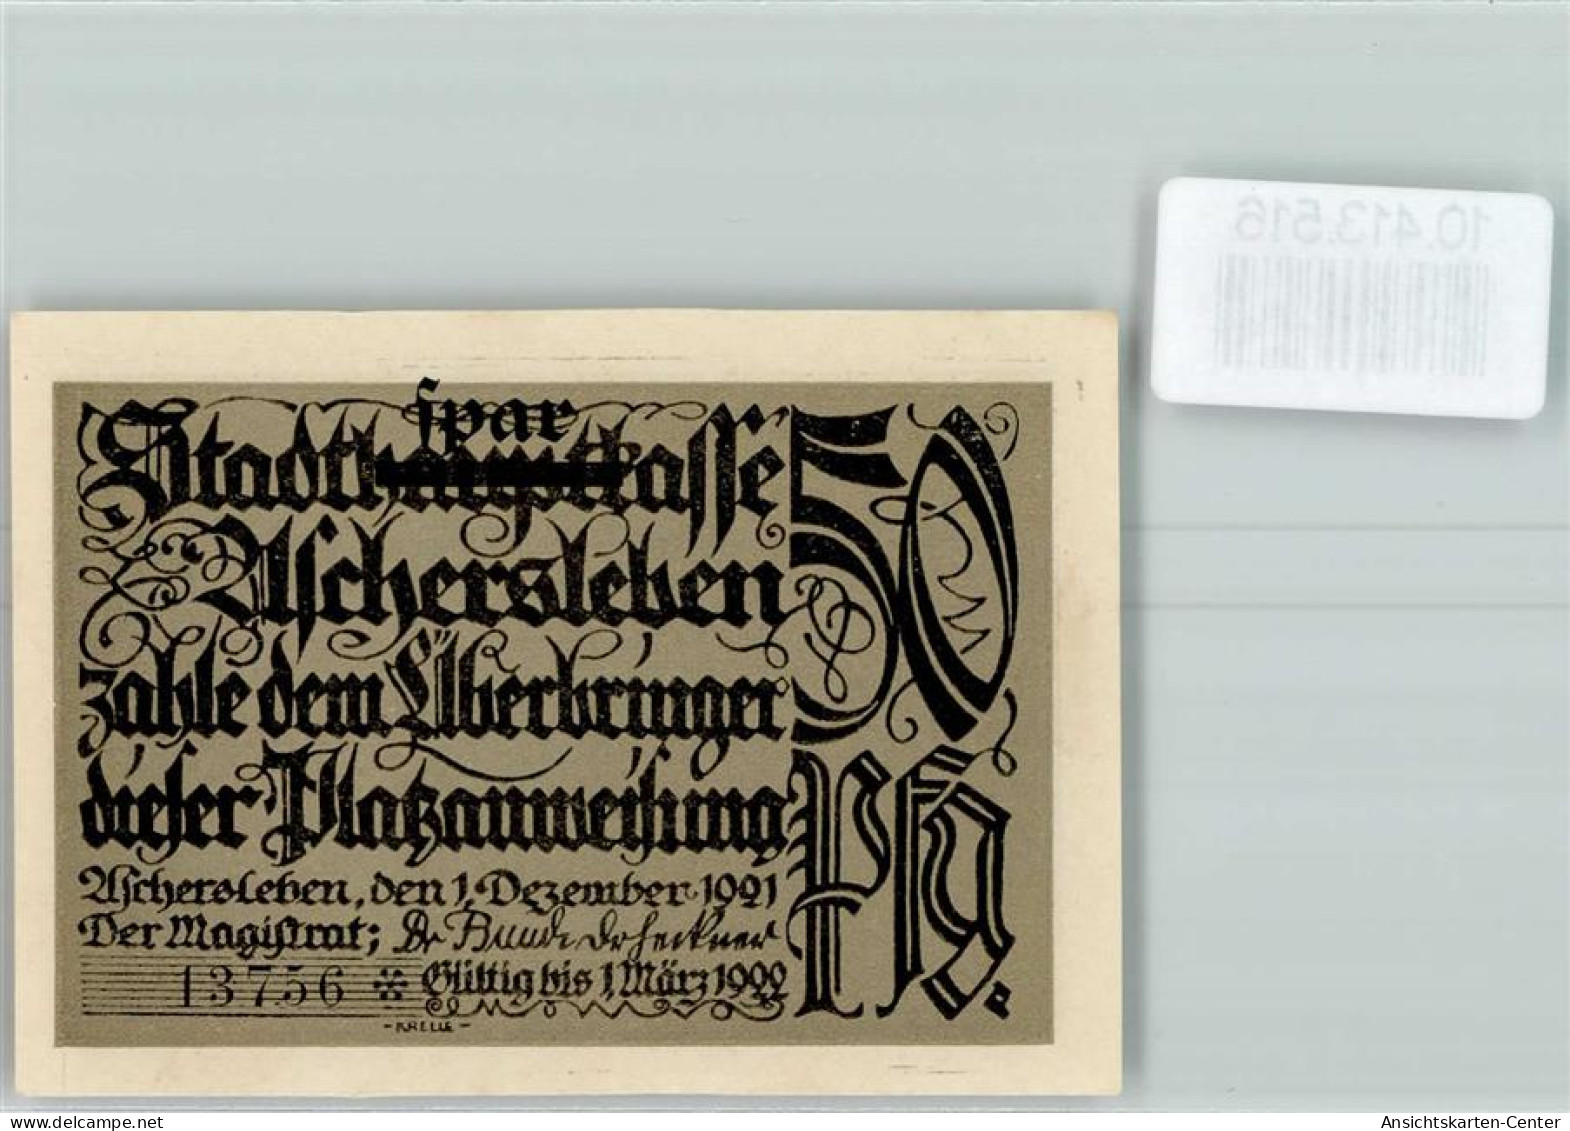 10.413.516
spar
Stadthauptkasse
Aschersleben
zahle dem Überbringer
dieser Platzanweisung
50
Pfg.
Aschersleben, den 1. Dezember 1921
Der Magistrat;
13756 * Gültig bis 1. März 1922
- KRELLE -
hamburg163.ak-ansichtskarten.de
Ansichtskarten-Center